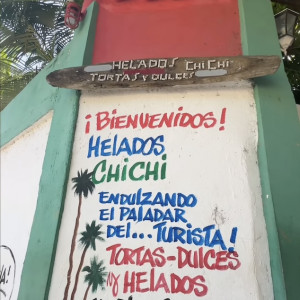 HELADOS CHICHI
TORTAS Y DULCES
¡BIENVENIDOS!
HELADOS
CHICHI
ENDULZANDO
EL PALADAR
DEL... TURISTA!
TORTAS-DULCES
y HELADOS